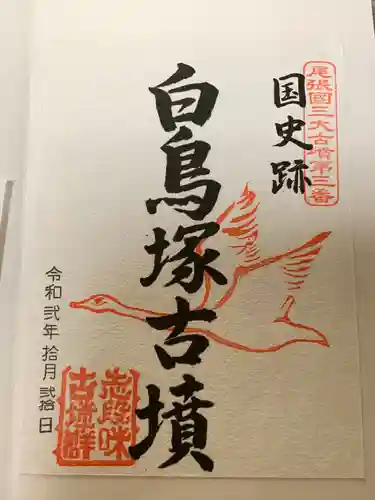 尾張國三大古墳第三番
国史跡
白鳥塚古墳
令和弐年拾月弐拾日
志段味
古墳群